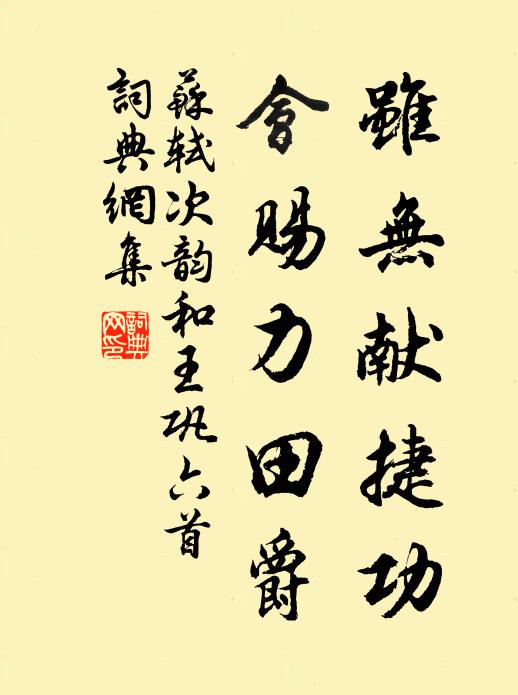 雖無献捷功
會賜力田爵
蘇軾次韵和王巩六首
詞典網集
詞典網印